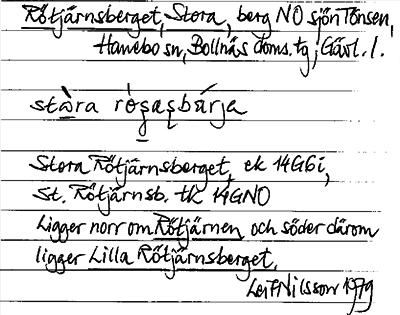 Rőtjärnsberget, Stora, berg NO sjön Tönsen,
Hanebo sn, Bollnäs doms. tg; Gävl. l.
Stora Rőtjärnsberget, ek 14G6i,
St. Rőtjärnsb. tk 14GNO
Ligger norr om Rőtjärnen och söder därom
ligger Lilla Rőtjärnsberget.
Leif Nilsson 1979